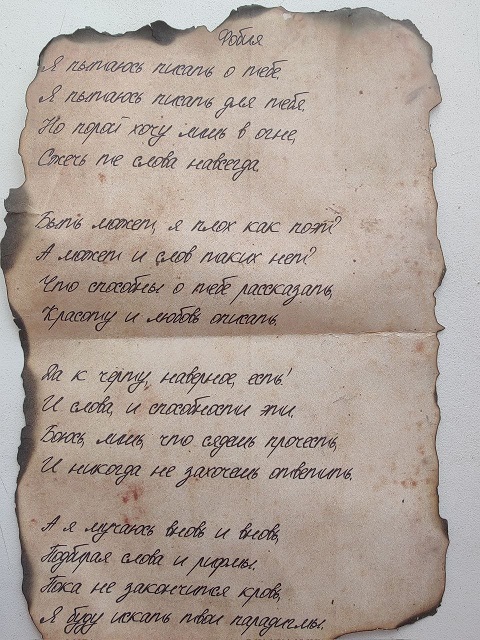 Фобия
Я пытаюсь писать о тебе,
Я пытаюсь писать для тебе.
Но порой хочу лишь в огне,
Сжечь те слова навсегда.
Быть может, я плох как поэт?
А может и слов таких нет?
Что способны о тебе рассказать,
Красоту и любовь описать.
Да к чёрту, наверное, есть!
И слова, и способности эти.
Боюсь, лишь, что сядешь прочесть,
И никогда не захочешь ответить.
А я мучаюсь вновь и вновь,
Подбирая слова и рифмы.
Пока не закончится кровь,
Я буду искать твои парадигмы.